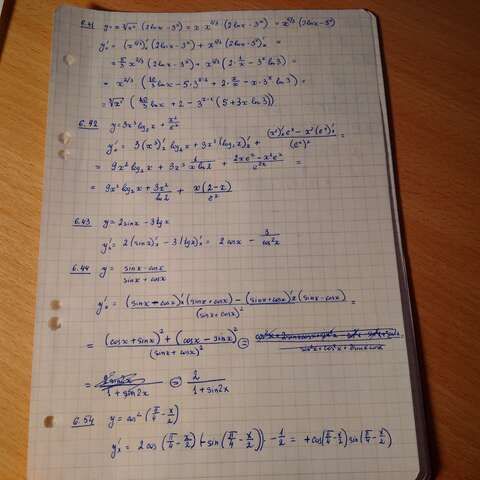 6.41 y = x ∛x² (2lnx - 3ˣ) = x·x^(2/3) (2lnx - 3ˣ) = x^(5/3) (2lnx - 3ˣ)
y'ₓ = (x^(5/3))'ₓ (2lnx - 3ˣ) + x^(5/3) (2lnx - 3ˣ)'ₓ =
= 5/3 x^(2/3) (2lnx - 3ˣ) + x^(5/3) (2·1/x - 3ˣ ln3) =
= x^(2/3) (10/3 lnx - 5·3^(x-1) + 2·x/x - x·3ˣ ln3) =
= ∛x² (10/3 lnx + 2 - 3^(x-1) (5 + 3x ln3))
6.42 y = 3x³ log₂x + x²/eˣ
y'ₓ = 3(x³)'ₓ log₂x + 3x³ (log₂x)'ₓ + ((x²)'ₓeˣ - x²(eˣ)'ₓ)/(eˣ)² =
= 9x² log₂x + 3x³ 1/(x ln2) + (2xeˣ - x²eˣ)/e^(2x) =
= 9x² log₂x + 3x²/ln2 + x(2-x)/eˣ
6.43 y = 2sinx - 3tgx
y'ₓ = 2(sinx)'ₓ - 3(tgx)'ₓ = 2cosx - 3/cos²x
6.44 y = (sinx - cosx)/(sinx + cosx)
y'ₓ = ((sinx - cosx)'ₓ(sinx + cosx) - (sinx + cosx)'ₓ(sinx - cosx))/(sinx + cosx)² =
= ((cosx + sinx)² + (cosx - sinx)²)/(sinx + cosx)² =
= 2/(1 + sin2x)
6.54 y = cos² (π/4 - x/2)
y'ₓ = 2cos (π/4 - x/2) (-sin(π/4 - x/2)) · -1/2 = +cos(π/4 - x/2) sin(π/4 - x/2)